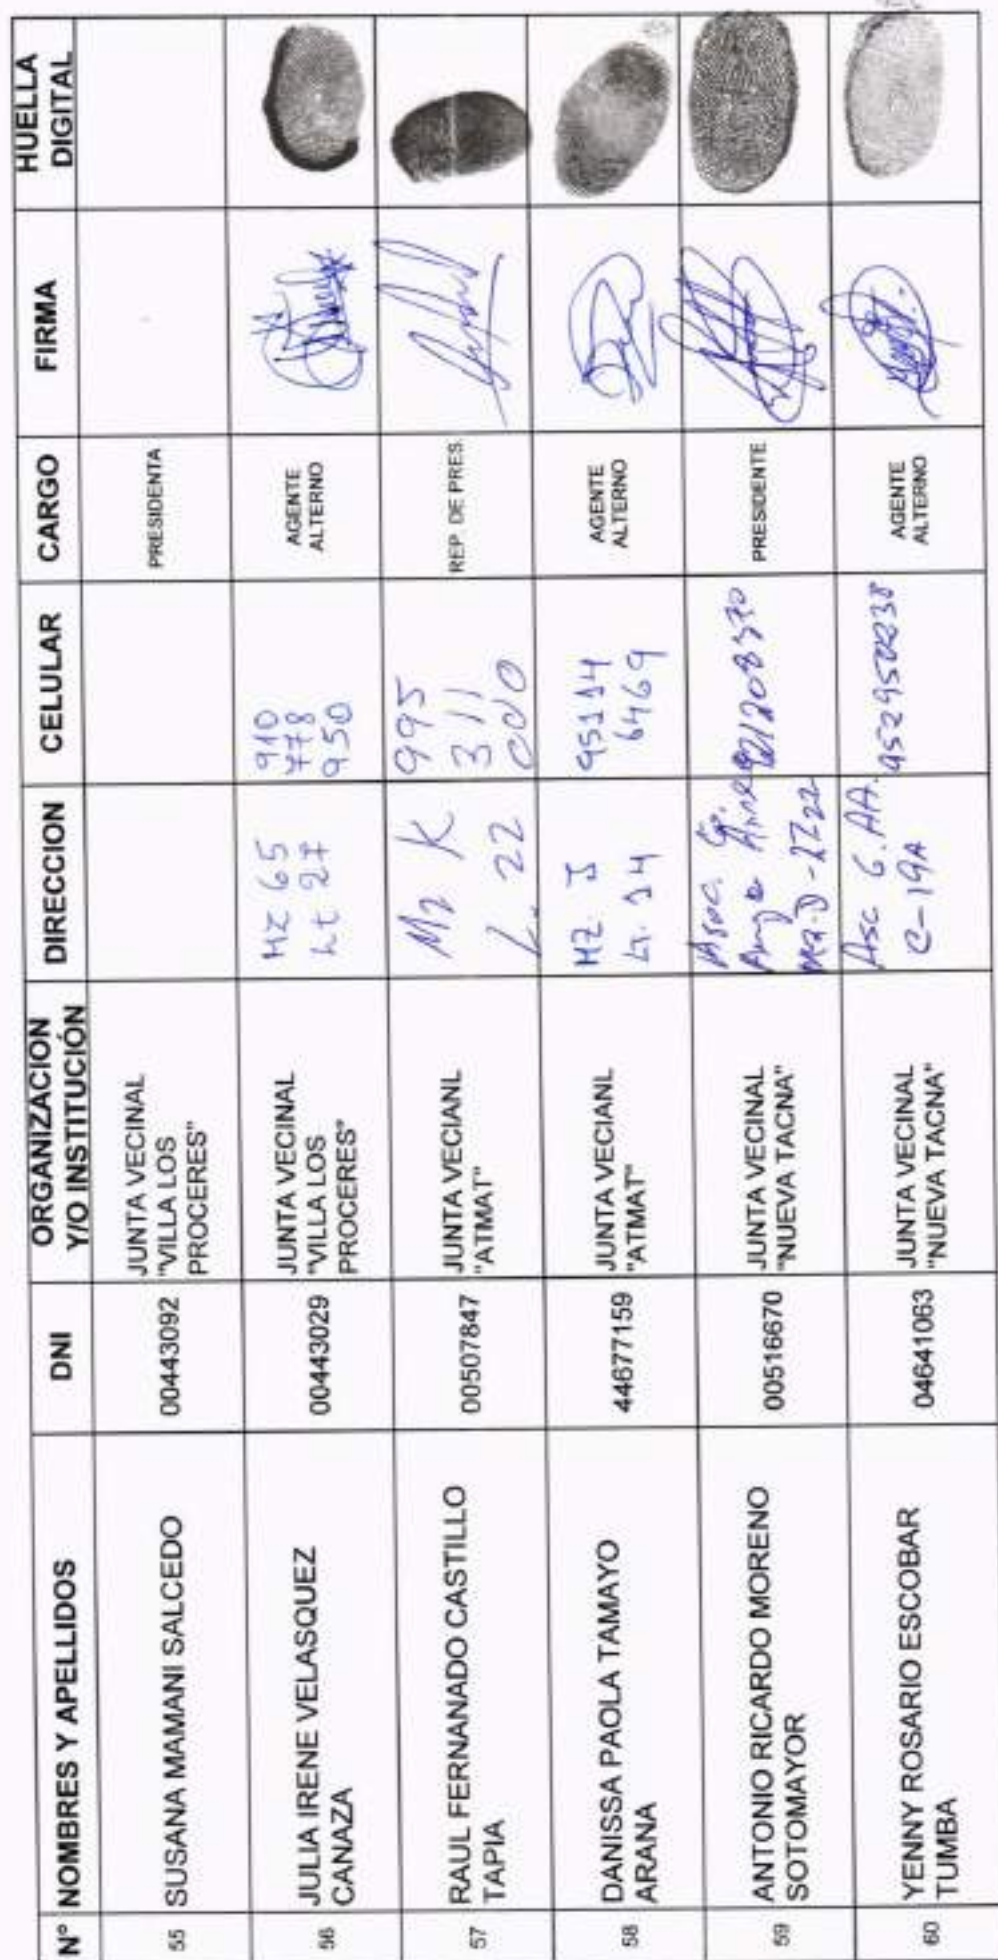 N° NOMBRES Y APELLIDOS DNI ORGANIZACION Y/O INSTITUCIÓN DIRECCION CELULAR CARGO FIRMA HUELLA DIGITAL
55 SUSANA MAMANI SALCEDO 00443092 JUNTA VECINAL "VILLA LOS PROCERES" PRESIDENTA
56 JULIA IRENE VELASQUEZ CANAZA 00443029 JUNTA VECINAL "VILLA LOS PROCERES" MZ 65 Lt 27 910 778 950 AGENTE ALTERNO
57 RAUL FERNANADO CASTILLO TAPIA 00507847 JUNTA VECIANL "ATMAT" Mz K L. 22 995 311 000 REP. DE PRES.
58 DANISSA PAOLA TAMAYO ARANA 44677159 JUNTA VECIANL "ATMAT" MZ J Lt. 14 95114 6469 AGENTE ALTERNO
59 ANTONIO RICARDO MORENO SOTOMAYOR 00516670 JUNTA VECINAL "NUEVA TACNA" Asoc. PRESIDENTE
60 YENNY ROSARIO ESCOBAR TUMBA 04641063 JUNTA VECINAL "NUEVA TACNA" Asc G.AA. C-19A AGENTE ALTERNO